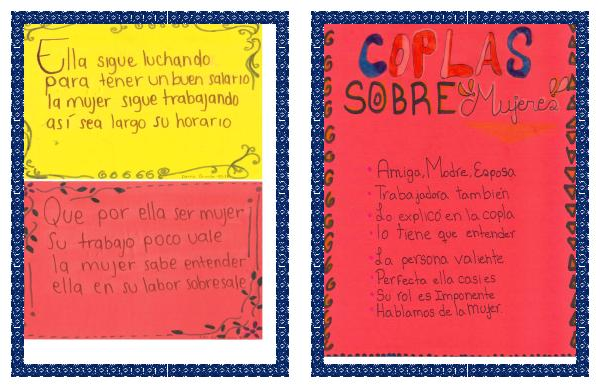 Ella sigue luchando
para tener un buen salario
la mujer sigue trabajando
así sea largo su horario
Que por ella ser mujer
su trabajo poco vale
la mujer sabe entender
ella en su labor sobresale
COPLAS
SOBRE Mujeres
Amiga, Madre, Esposa
Trabajadora también
Lo explicó en la copla
lo tiene que entender
La persona valiente
Perfecta ella casi es
Su rol es Imponente
Hablamos de la mujer.